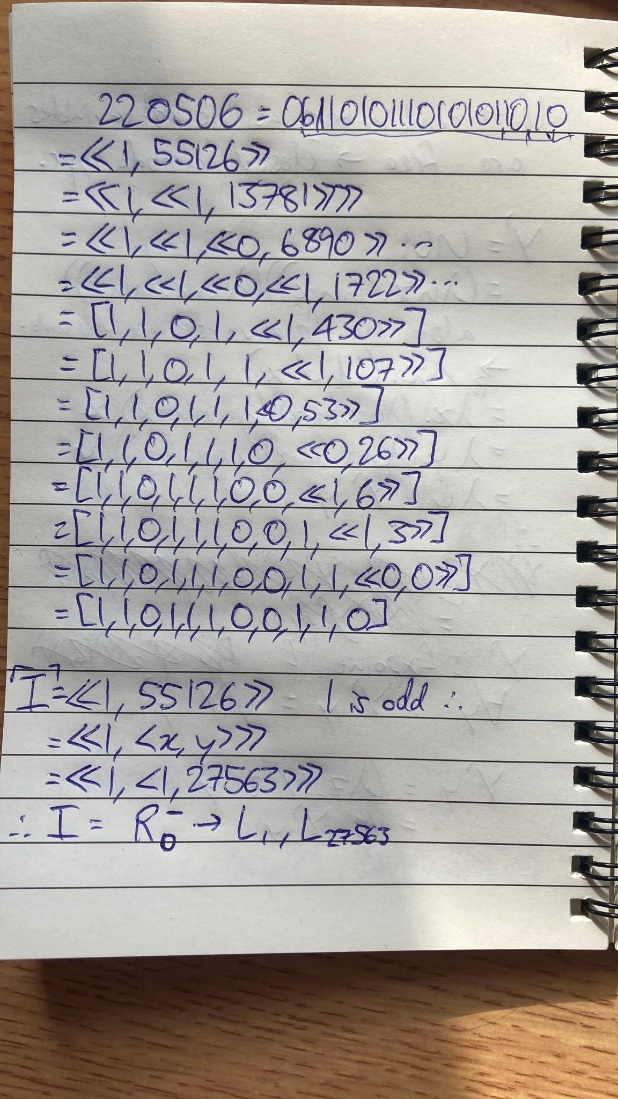 220506 = 0b110101110101011010
= ⟪1, 55126⟫
= ⟪1, ⟪1, 13781⟫⟫
= ⟪1, ⟪1, ⟪0, 6890⟫ ...
= ⟪1, ⟪1, ⟪0, ⟪1, 1722⟫ ...
= [1, 1, 0, 1, ⟪1, 430⟫]
= [1, 1, 0, 1, 1, ⟪1, 107⟫]
= [1, 1, 0, 1, 1, 1, ⟪0, 53⟫]
= [1, 1, 0, 1, 1, 1, 0, ⟪0, 26⟫]
= [1, 1, 0, 1, 1, 1, 0, 0, ⟪1, 6⟫]
= [1, 1, 0, 1, 1, 1, 0, 0, 1, ⟪1, 3⟫]
= [1, 1, 0, 1, 1, 1, 0, 0, 1, 1, ⟪0, 0⟫]
= [1, 1, 0, 1, 1, 1, 0, 0, 1, 1, 0]
⌈I⌉ = ⟪1, 55126⟫ 1 is odd ∴
= ⟪1, <x, y>⟫
= ⟪1, <1, 27563>⟫
∴ I = R₀⁻ → L₁, L₂₇₅₆₃